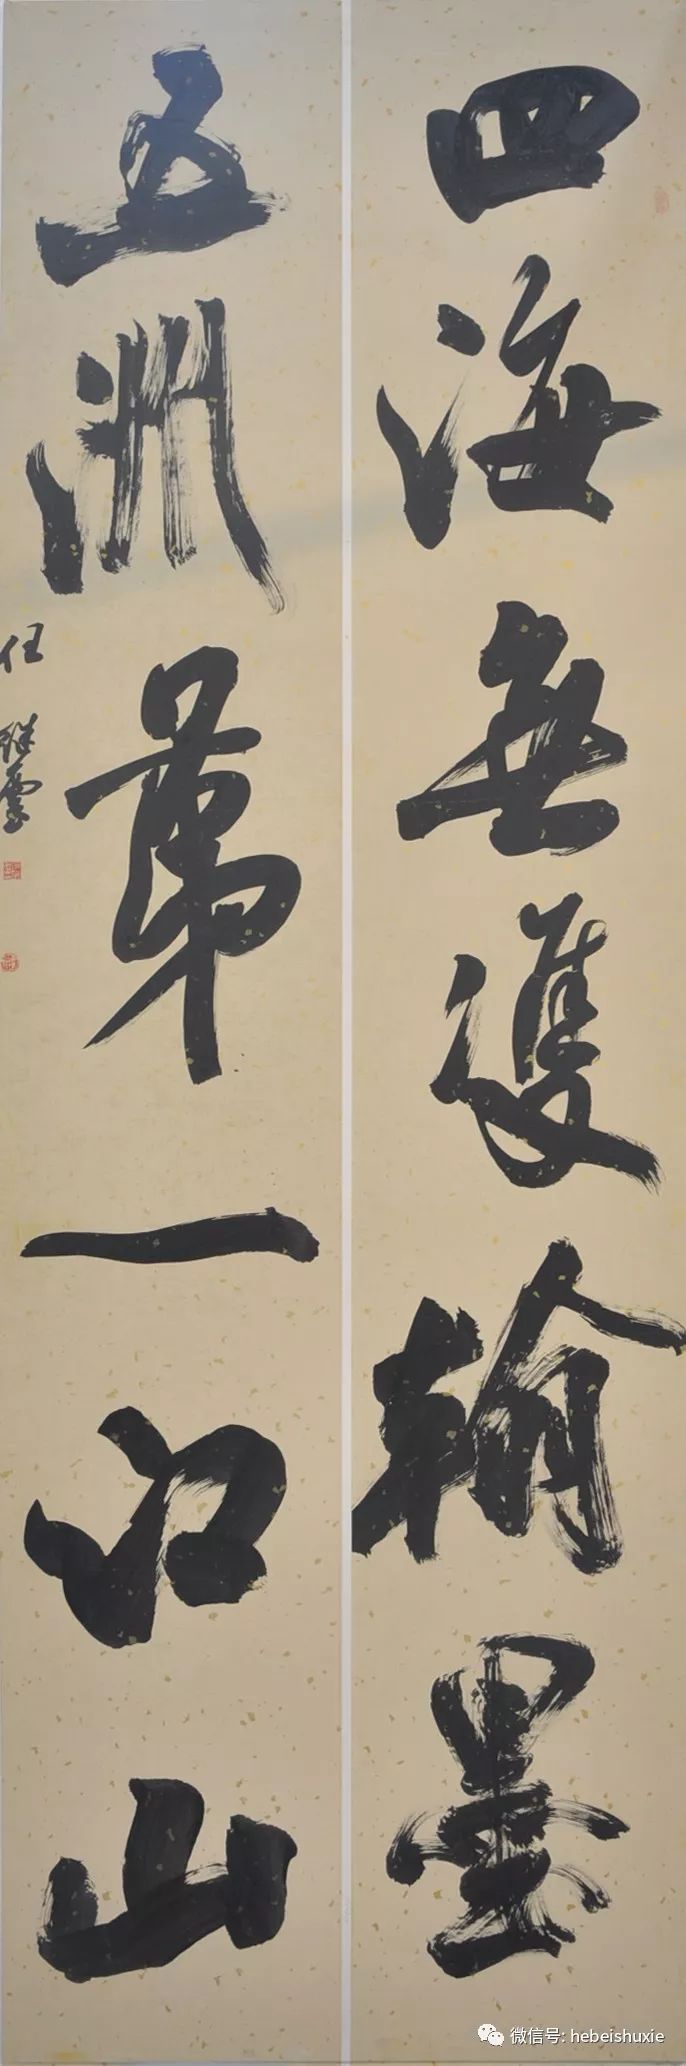 四海無雙翰墨
五洲第一江山
任
微信号: hebeishuxie